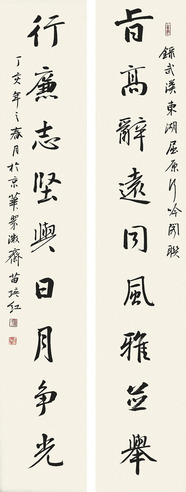 錄武漢東湖屈原行吟閣聯
旨高辭遠同風雅並舉
行廉志堅與日月争光
丁亥年之春月於京華翠微齋苗培红